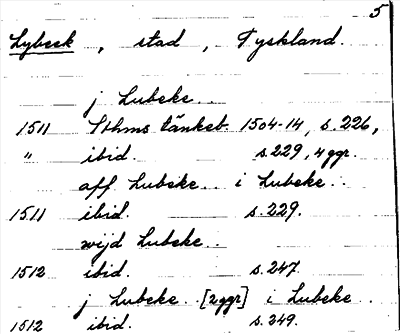 5
Lybeck, stad, Tyskland.
j Lubeke..
1511 Sthms tänkeb. 1504-14, s. 226,
" ibid. s. 229, 4 ggr.
aff Lubeke.. i Lubeke..
1511 ibid. s. 229.
wijd Lubeke..
1512 ibid. s. 247.
j Lubeke..[2 ggr] i Lubeke..
1512 ibid. s. 249.